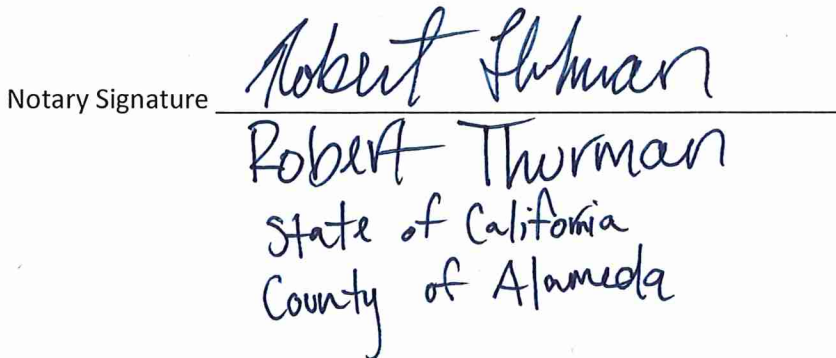 Notary Signature Robert Thurman
Robert Thurman
State of California
County of Alameda